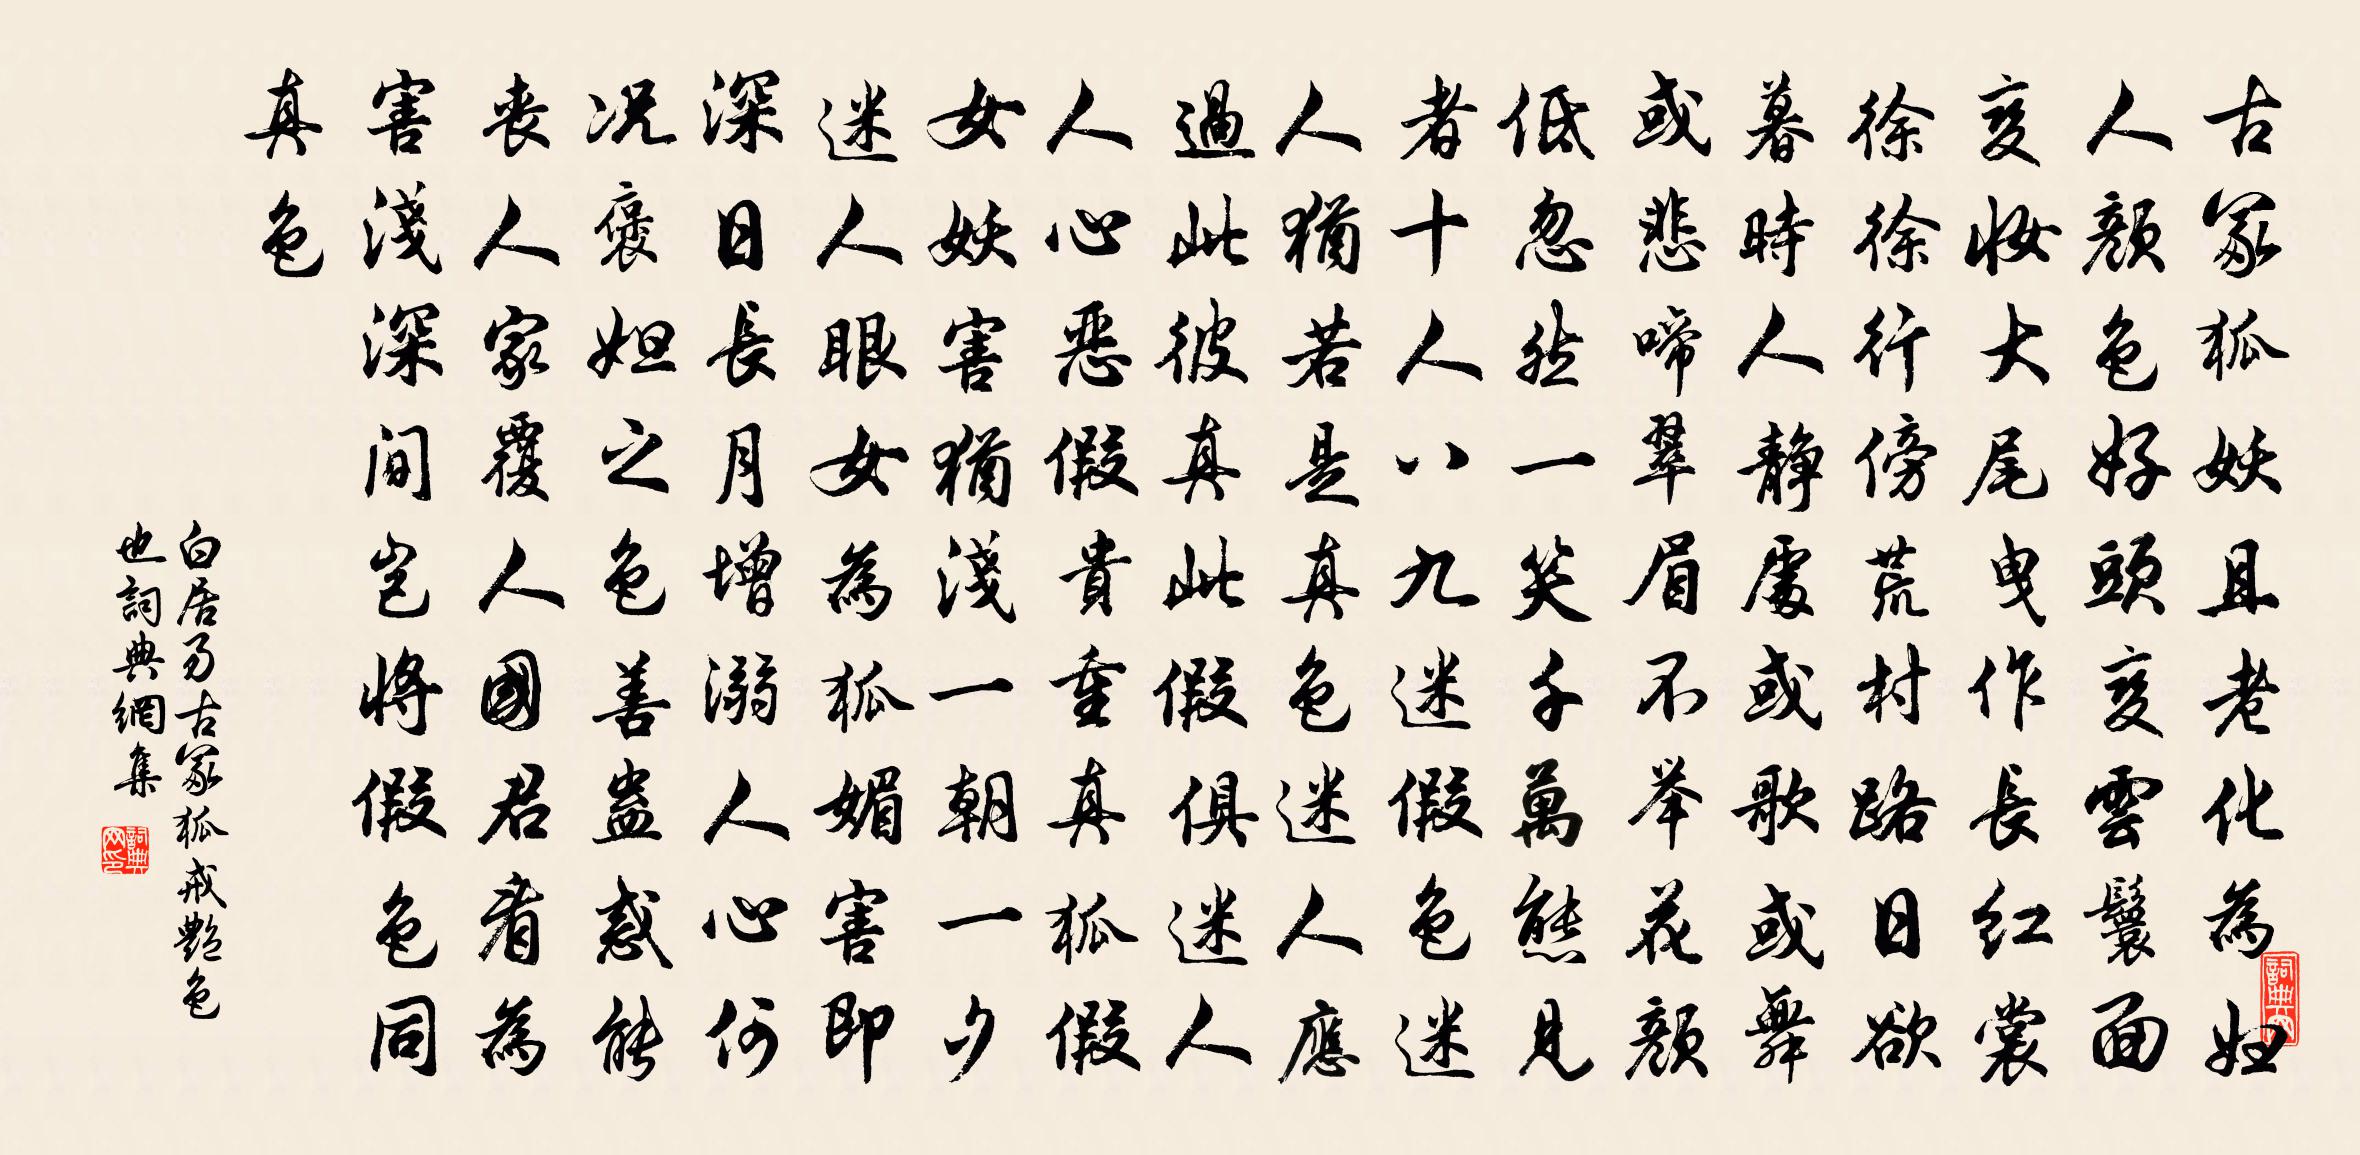 古冢狐妖且老化為妇
人颜色好頭变雲鬟面
变妆大尾曳作長红裳
徐徐行傍荒村路日欲
暮時人静處或歌或舞
或悲啼翠眉不举花颜
低忽然一笑千萬態見
者十人八九迷假色迷
人猶若是真色迷人應
過此彼真此假俱迷人
人心恶假貴重真狐假
女妖害猶淺一朝一夕
迷人眼女為狐媚害即
深日長月增溺人心何
况褒妲之色善蛊惑能
丧人家覆人國君看為
害淺深间岂将假色同
真色
白居易古冢狐戒艷色
也詞典網集
詞典网印
詞典网